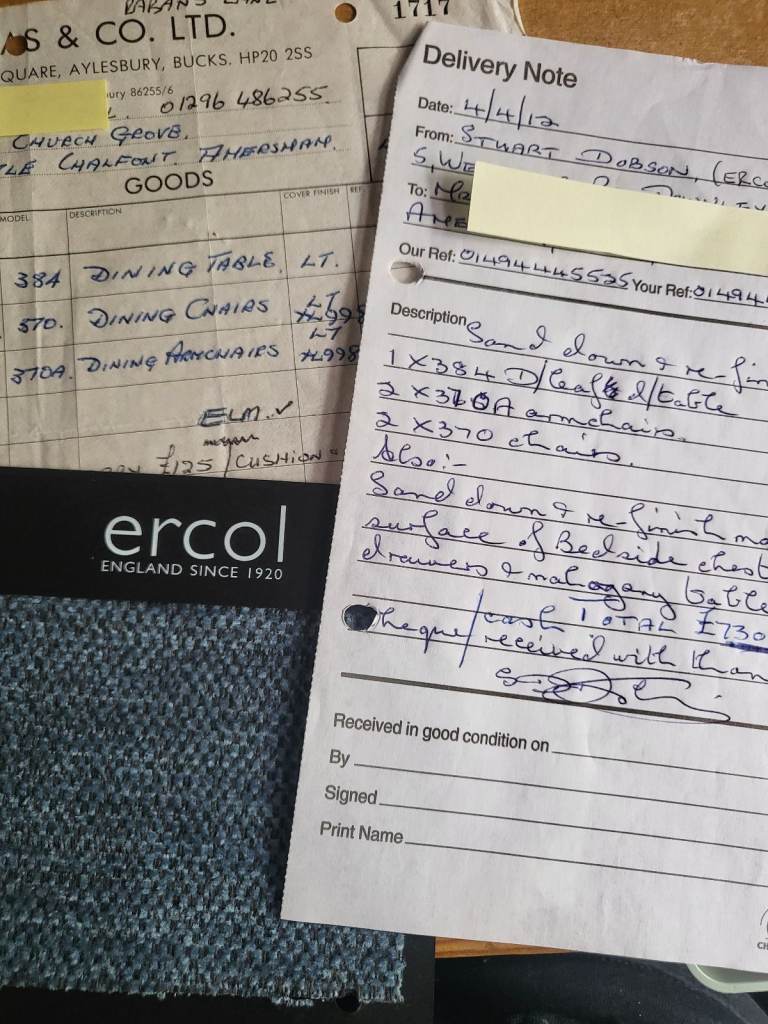 RABANS LANE
1717
AS & CO. LTD.
QUARE, AYLESBURY, BUCKS. HP20 2SS
ury 86255/6
01296 486255.
CHURCH GROVE,
TLE CHALFONT. AMERSHAM.
GOODS
MODEL DESCRIPTION COVER FINISH REF.
384 DINING TABLE. LT.
370. DINING CHAIRS LT
HL998
370A. DINING ARMCHAIRS LT
HL998
ELM. ✓
£125 / CUSHION
ercol
ENGLAND SINCE 1920
Delivery Note
Date: 4/4/12
From: STUART DOBSON, (ERCO
5, WE
To: MR
AME
Our Ref: 01494445525 Your Ref: 01494
Description Sand down & re-fin
1 X 384 D/leaf d/table
2 X 370A armchairs.
2 X 370 chairs.
Also:-
Sand down & re-finish ma
surface of Bedside chest
drawers & mahogany table
TOTAL £730
Cheque/cash received with than
Received in good condition on
By
Signed
Print Name
CH